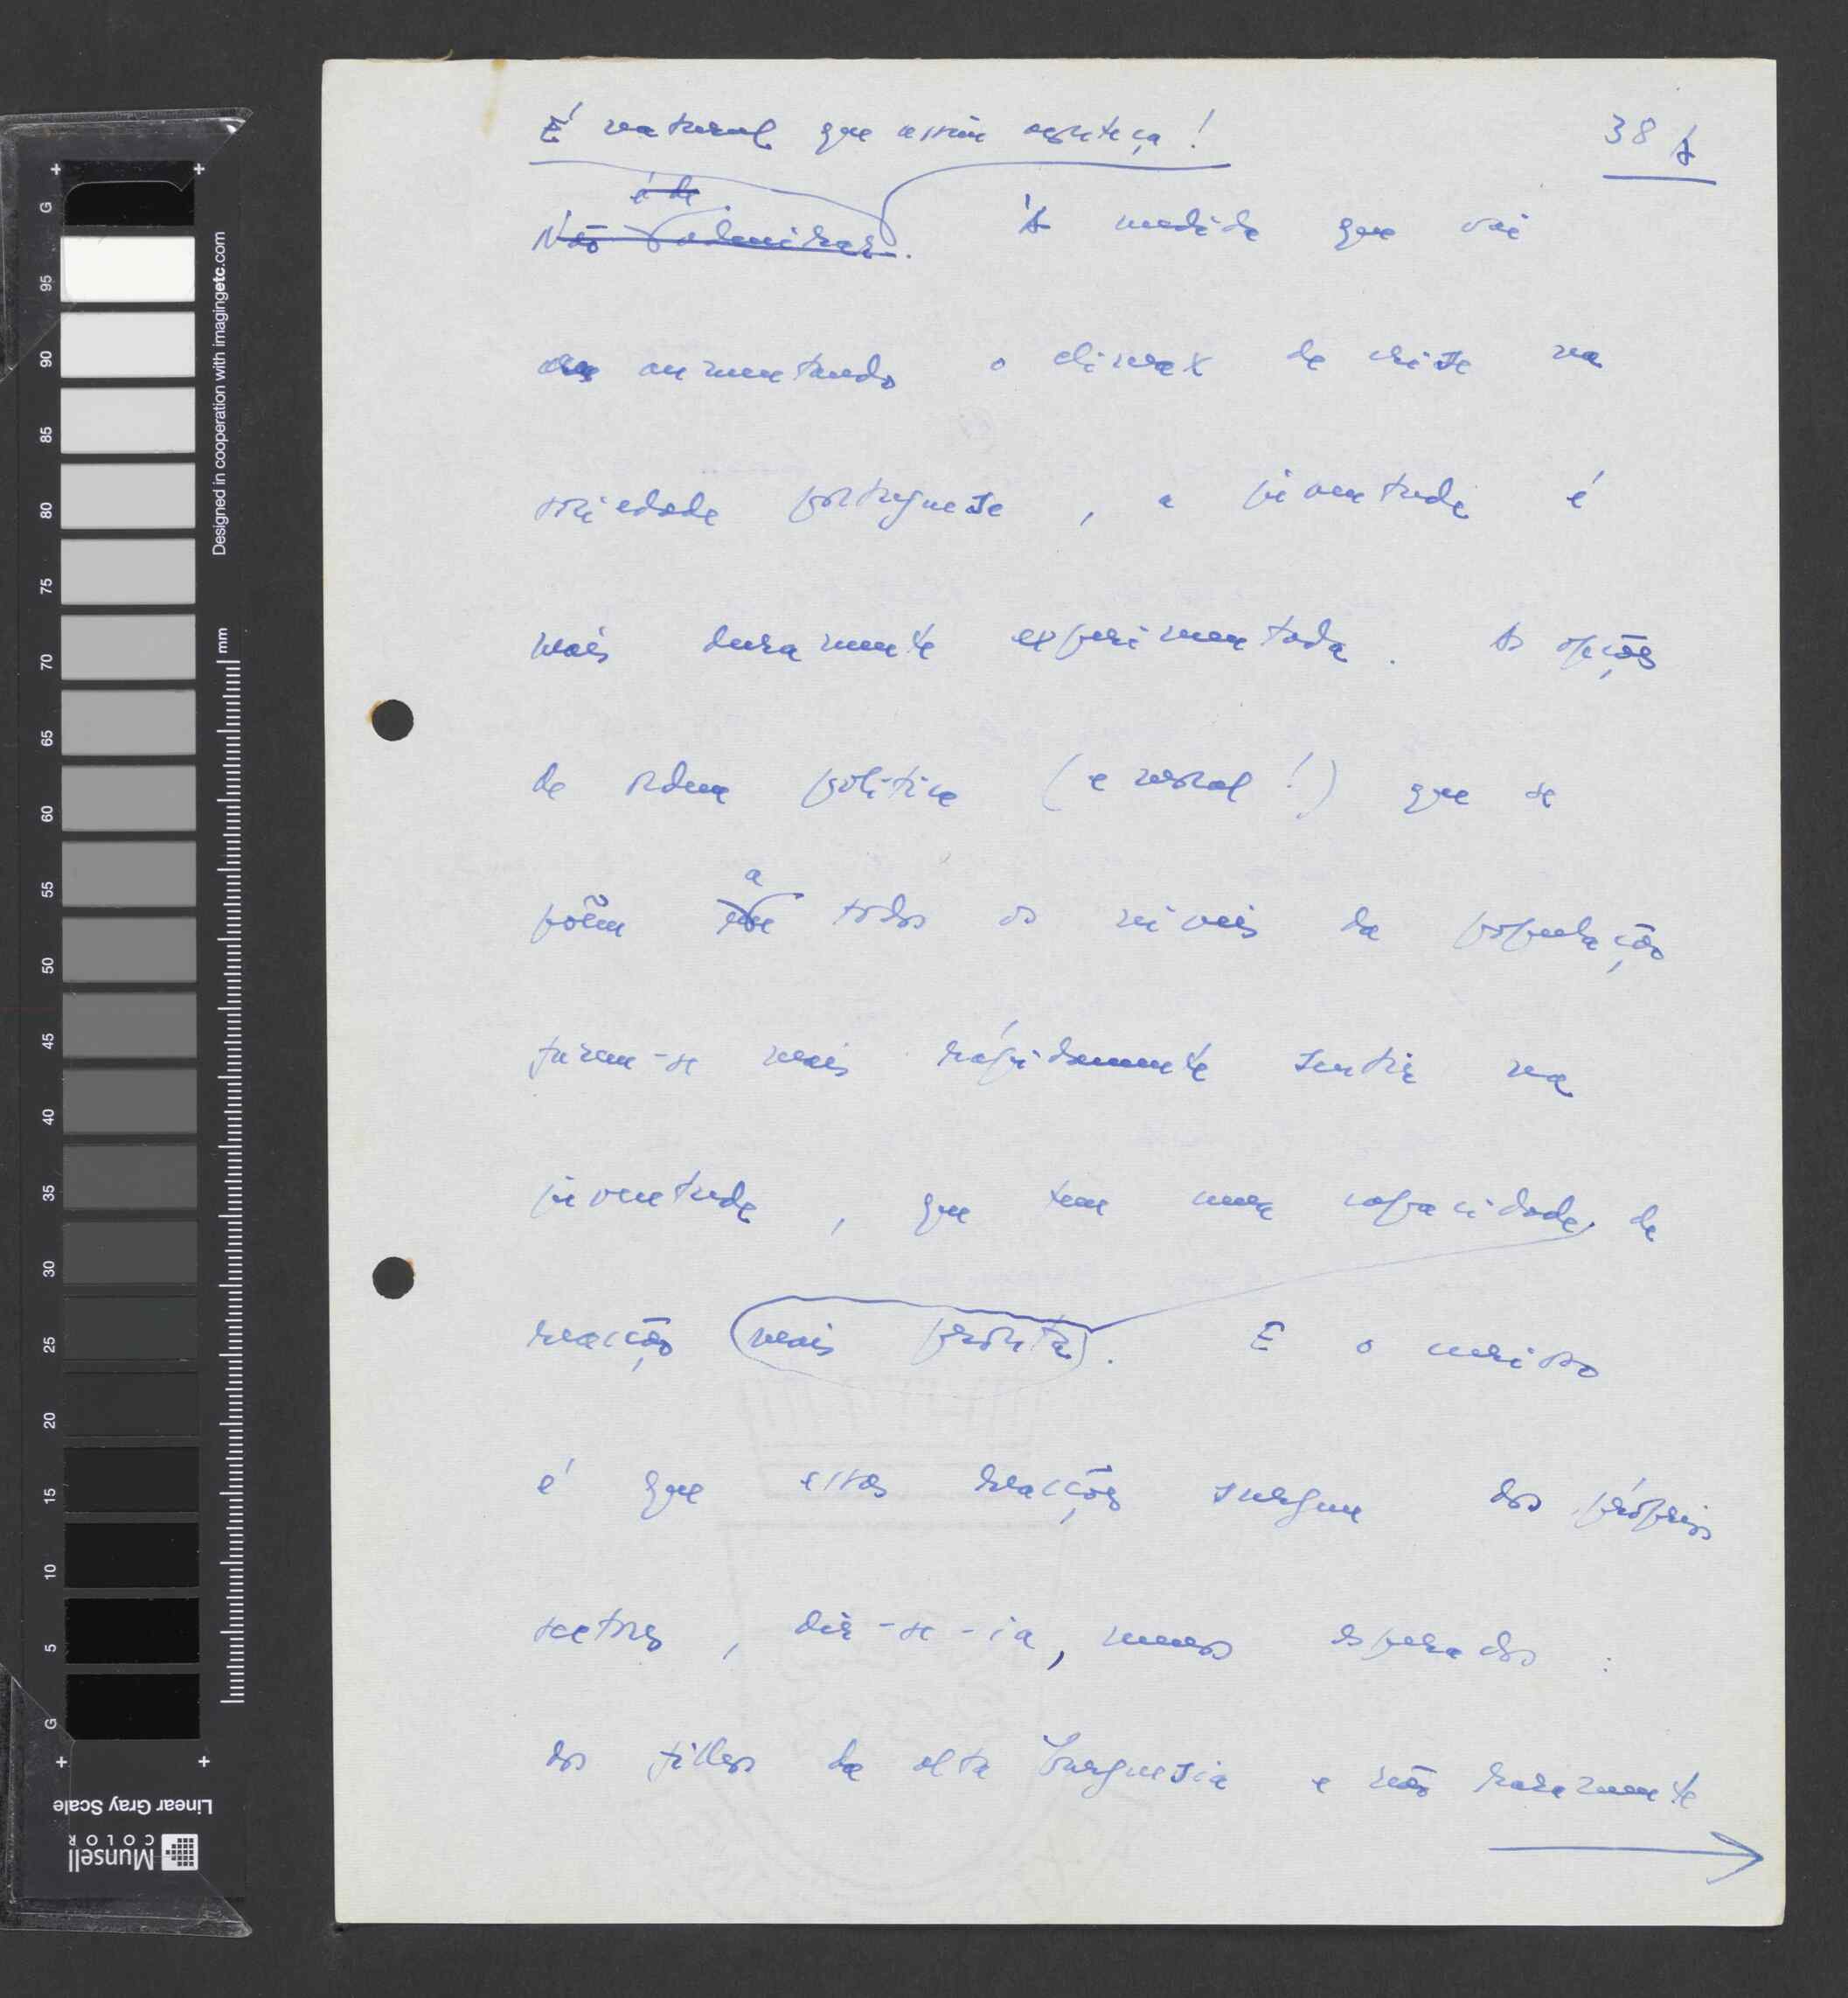 É natural que assim aconteça!
38 A
é de
Não admirar.
À medida que vai
aumentando o climax de crise na
sociedade portuguesa, a juventude é
mais duramente experimentada. As opções
de ordem política (e moral!) que se
a
põem todos os níveis da população
fazem-se mais rápidamente sentir na
juventude, que tem uma capacidade de
reacção mais pronta. E o curioso
é que essas reacções surgem dos próprios
sectores, dir-se-ia, menos esperados:
dos filhos da alta burguesia e não raramente
G
95
90
85
80
75
70
65
60
55
50
45
40
35
30
25
20
15
10
5
G
mm
Designed in cooperation with imagingetc.com
Linear Gray Scale
Munsell
COLOR